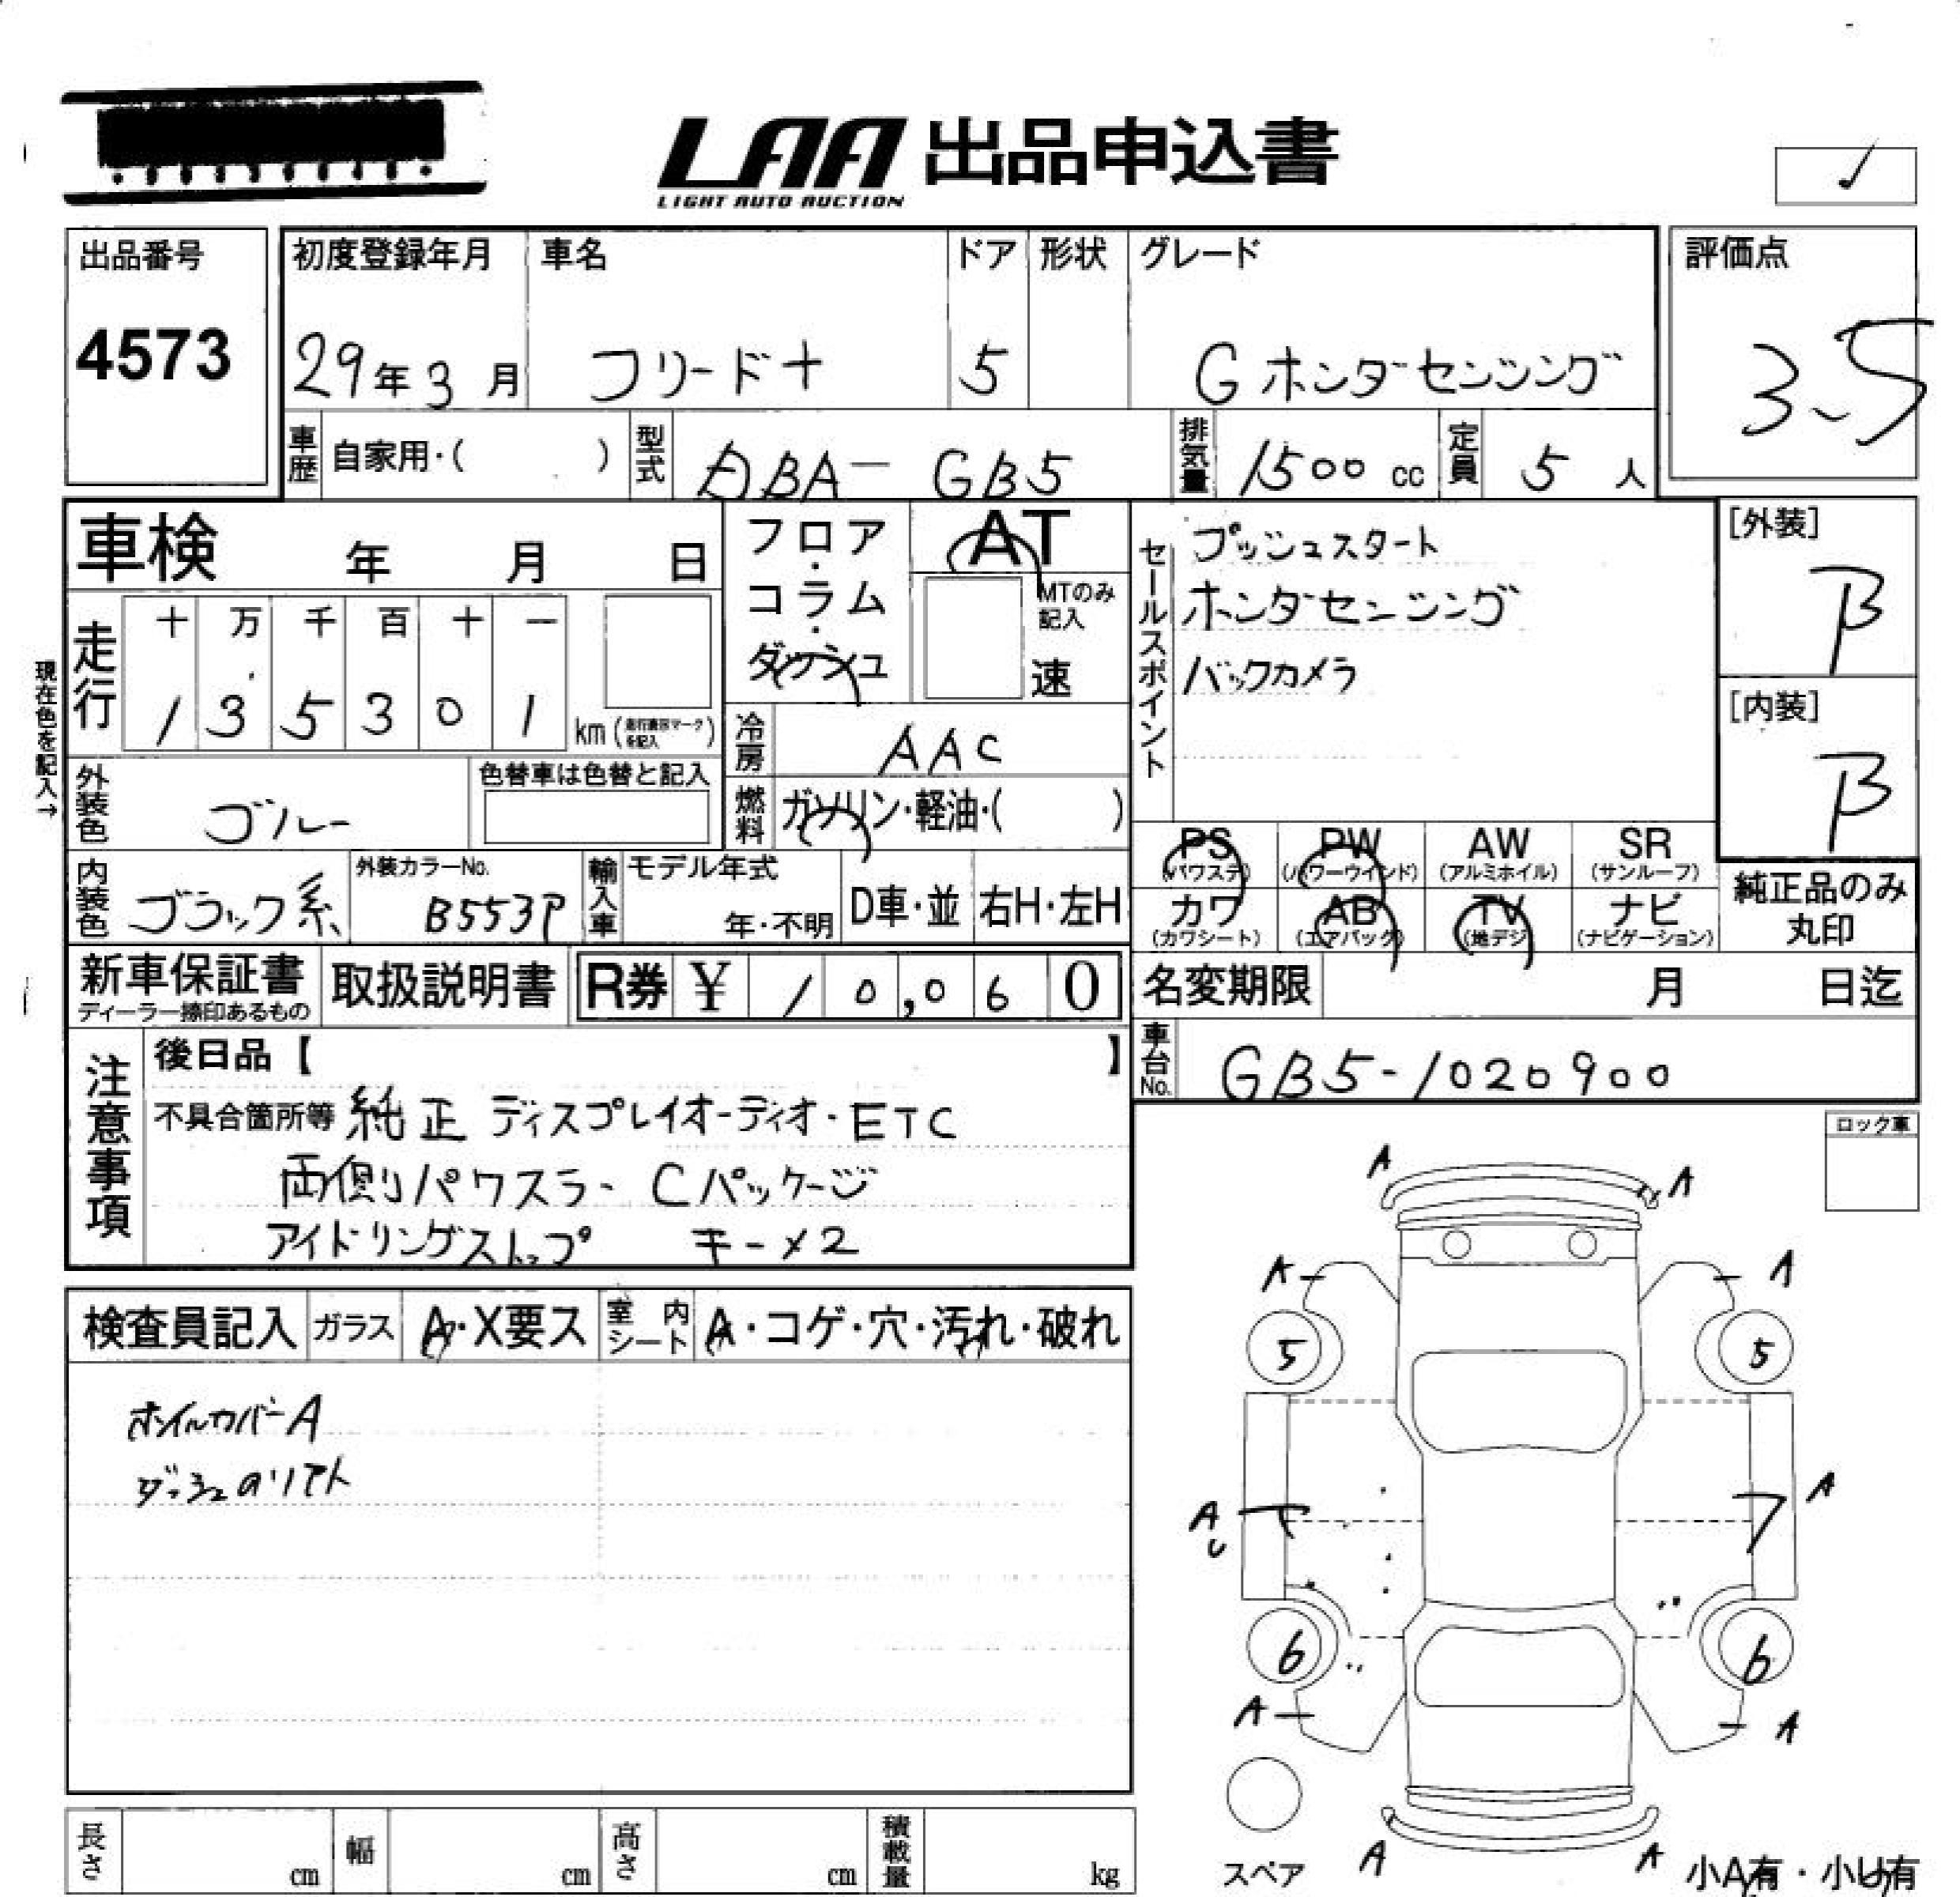 LAA 出品申込書
LIGHT AUTO AUCTION
出品番号
4573
初度登録年月 車名 ドア 形状 グレード
29年3月 フリード+ 5 Gホンダセンシング
評価点
3.5
車歴 自家用・( ) 型式 DBA-GB5 排気量 1500cc 定員 5人
車検 年 月 日
フロア・コラム・ダッシュ
AT
MTのみ記入
速
走行 十 万 千 百 十 一
1 3 5 3 0 1 km(走行表示マークを記入)
現在色を記入→
冷房 AAC
燃料 ガソリン・軽油・( )
外装色 ブルー
色替車は色替と記入
内装色 ブラック系
外装カラーNo. B553P
輸入車 モデル年式 年・不明 D車・並 右H・左H
セールスポイント
プッシュスタート
ホンダセンシング
バックカメラ
[外装]
B
[内装]
B
PS PW AW SR
(パワステ) (パワーウインド) (アルミホイル) (サンルーフ)
カワ AB TV ナビ
(カワシート) (エアバック) (地デジ) (ナビゲーション)
純正品のみ丸印
新車保証書 取扱説明書 R券 ¥ 10,060
ディーラー捺印あるもの
名変期限 月 日迄
車台No. GB5-1020900
注意事項
後日品【 】
不具合箇所等 純正ディスプレイオーディオ・ETC
両側パワスラー Cパッケージ
アイドリングストップ キー×2
ロック車
検査員記入 ガラス A・X要ス 室内シート A・コゲ・穴・汚れ・破れ
ホイルカバーA
A A
A A
5 5
A A
U
6 6
A A
A A
スペア
小A有・小U有
長さ cm 幅 cm 高さ cm 積載量 kg